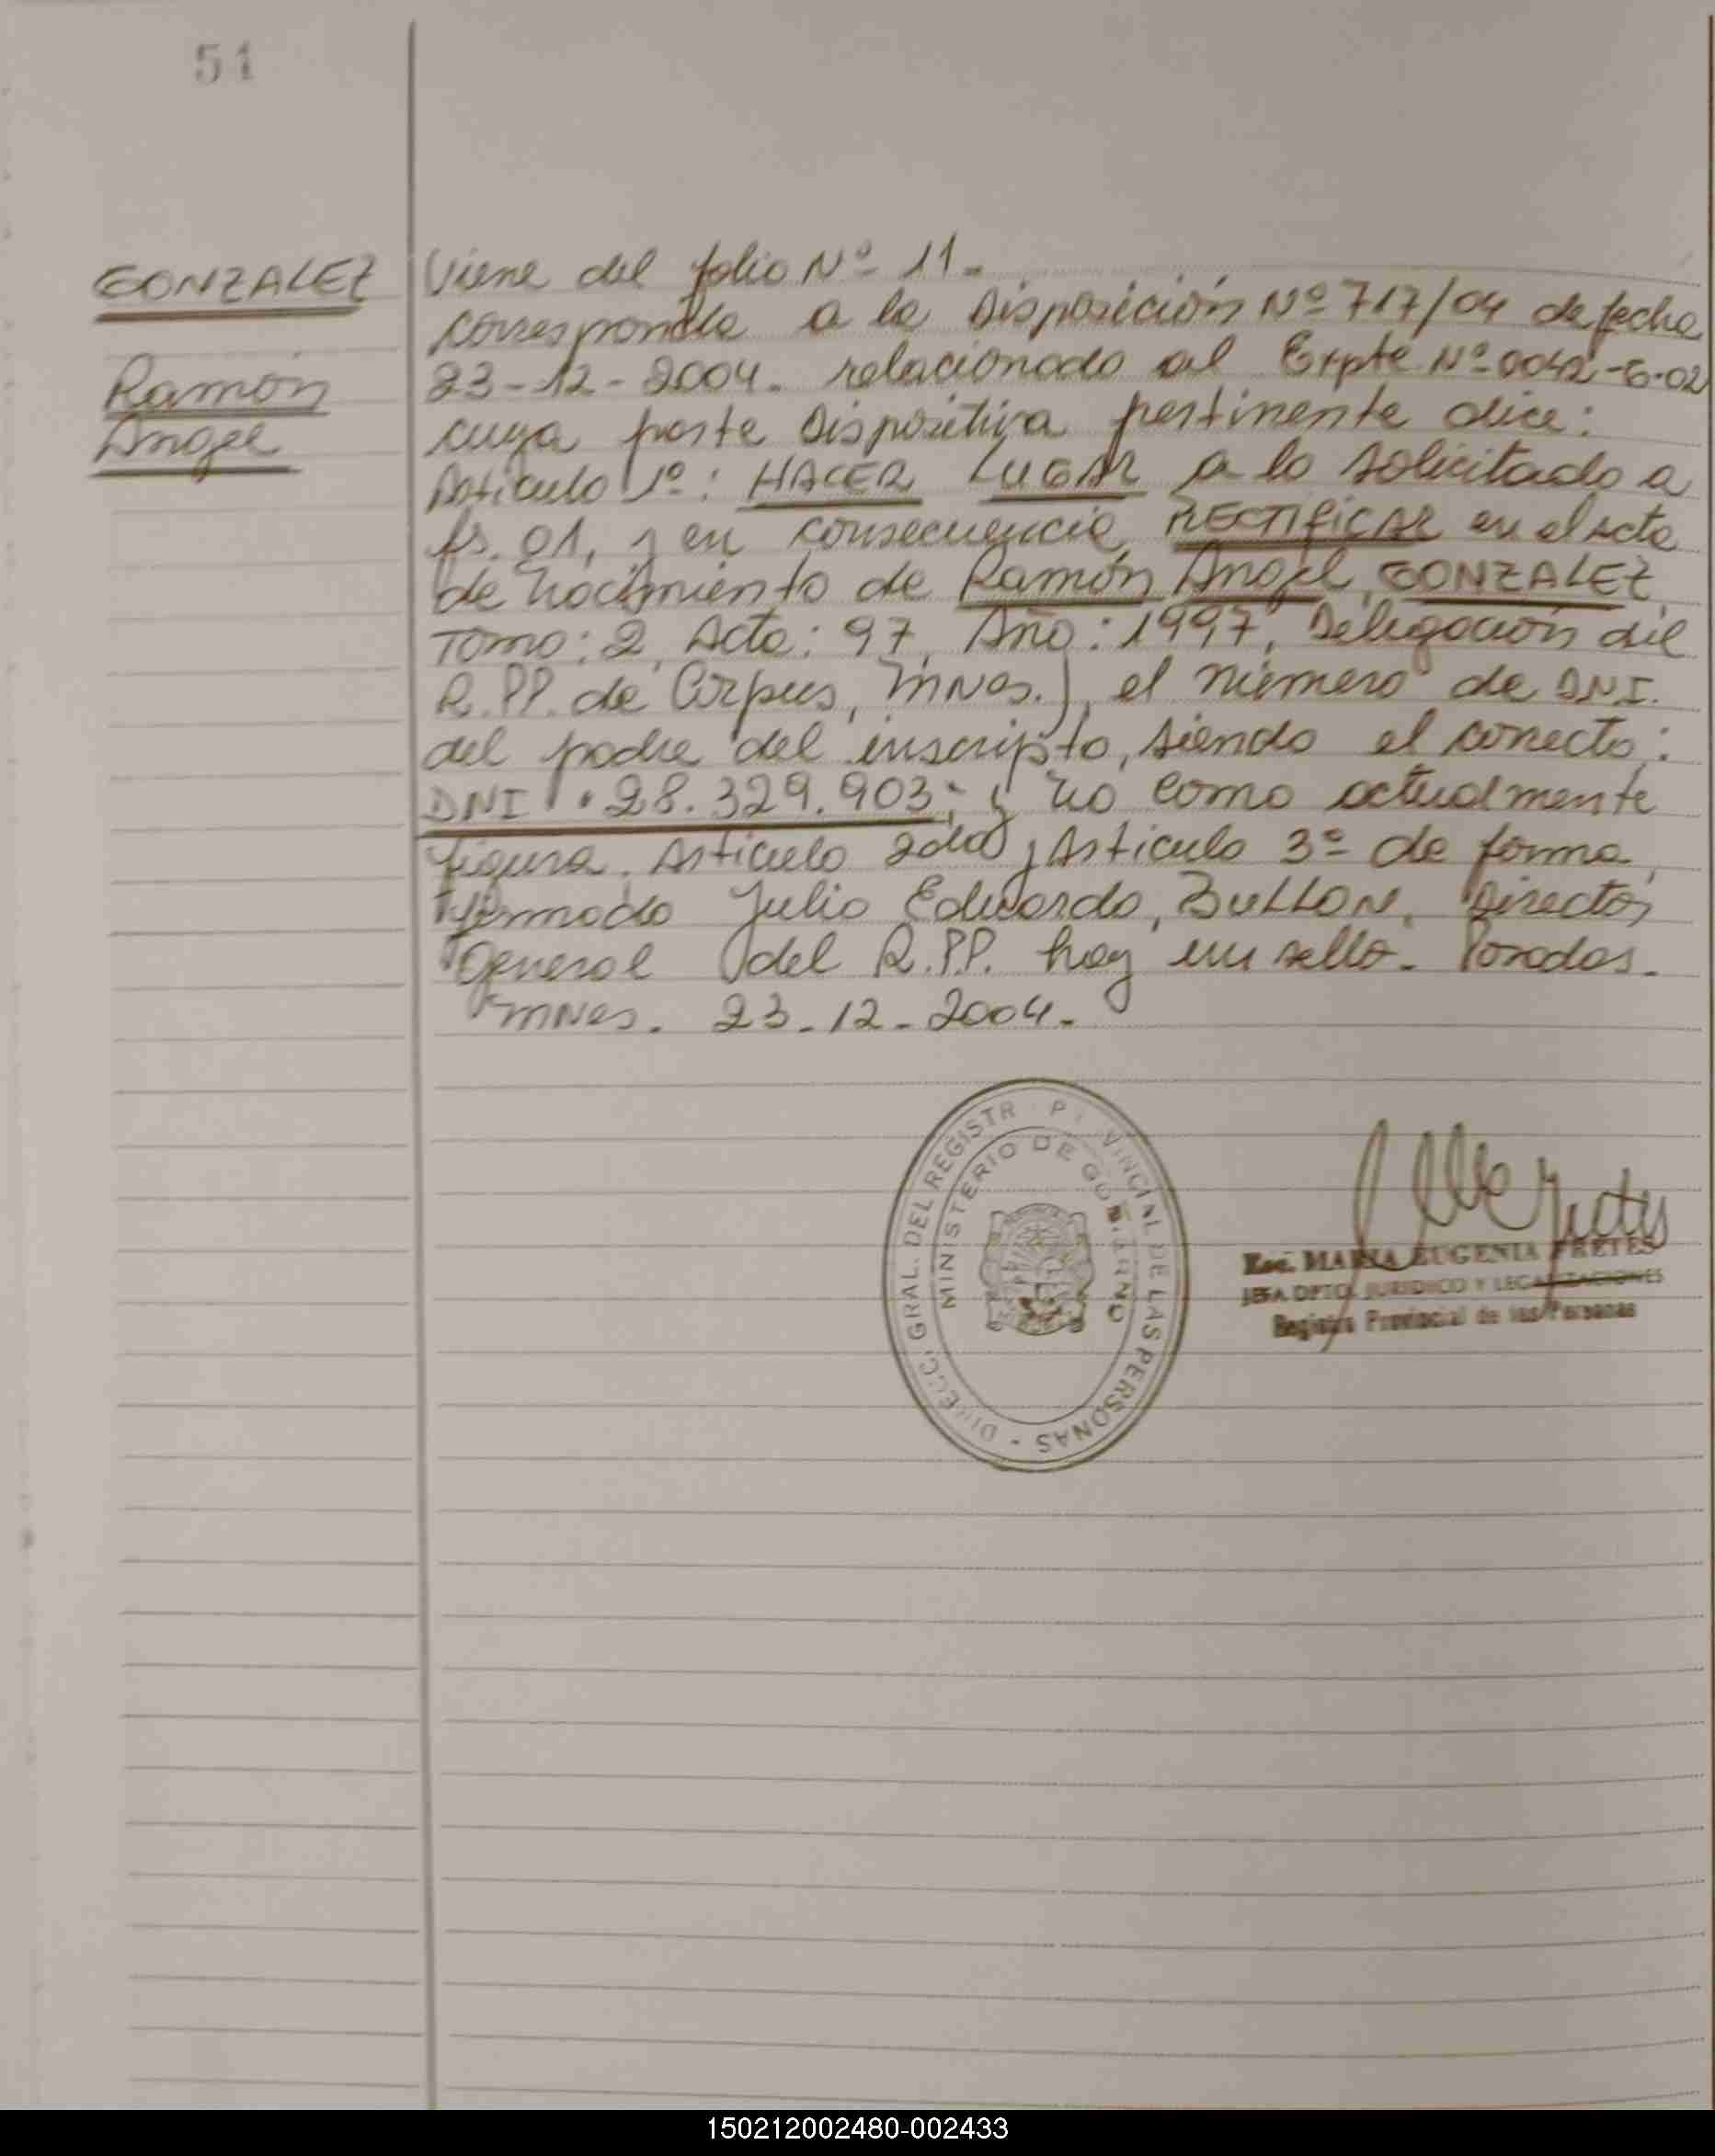 51
GONZALEZ
Ramón
Angel
Viene del folio Nº 11-
corresponde a la Disposición Nº 717/04 de fecha
23-12-2004. relacionado al Expte Nº 0042-G-02
cuya parte Dispositiva pertinente dice:
Articulo 1º: HACER LUGAR a lo solicitado a
fs. 01, y en consecuencia RECTIFICAR en el acta
de nacimiento de Ramón Angel, GONZALEZ,
Tomo: 2, Acta: 97, Año: 1997, Delegación del
R.PP. de Corpus, Mnes.), el número de DNI.
del padre del inscripto, siendo el correcto:
DNI: 28.329.903; y no como actualmente
figura. Articulo 2do, Articulo 3º de forma,
firmado Julio Eduardo, BULLON, Director
General del R.P.P. hay un sello- Posadas-
Mnes. 23-12-2004-
DIRECC. GRAL. DEL REGISTR P VINCIAL DE LAS PERSONAS -
MINISTERIO DE GOBIERNO
Esc. MARIA EUGENIA FRETES
JEFA DPTO. JURIDICO Y LEGALIZACIONES
Registro Provincial de las Personas
150212002480-002433